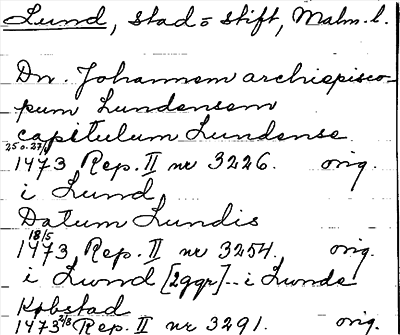 Lund, stad = stift, Malm. l.
Dn. Johannem archiepisco-
pum Lundensem
capitulum Lundense
25 o. 27/4
1473 Rep. II nr 3226. orig.
i Lund
Datum Lundis
18/5
1473 Rep. II nr 3254. orig.
i Lwnd [2ggr]..i Lwnde
Købstad
1473 2/8 Rep. II nr 3291. orig.